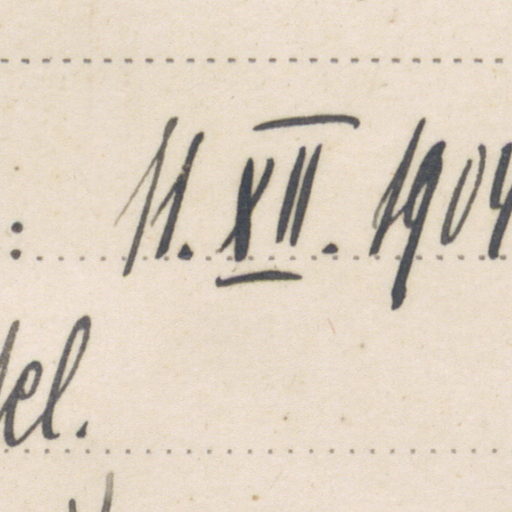 : 11. XII. 1904
el.